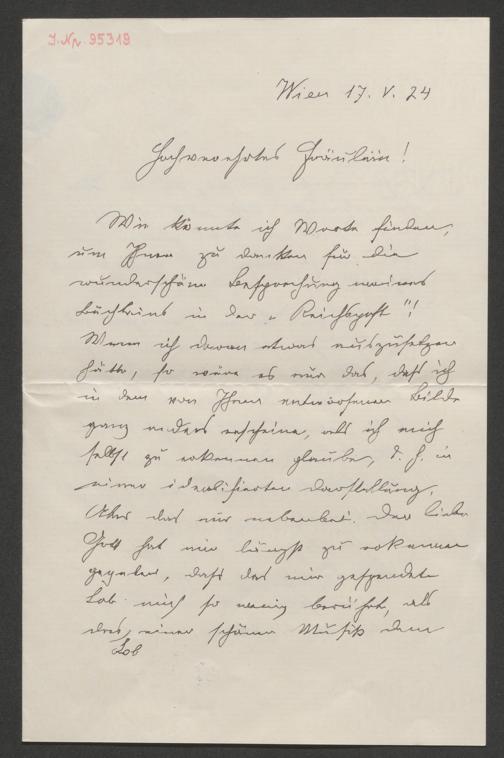 J.Nr. 95319
Wien 17. V. 24
Hochverehrtes Fräulein!
Wie könnte ich Worte finden,
um Ihnen zu danken für die
wunderschöne Besprechung meines
Büchleins in der „Reichspost"!
Wenn ich daran etwas auszusetzen
hätte, so wäre es nur das, daß ich
in dem von Ihnen entworfenen Bilde
ganz anders erscheine, als ich mich
selbst zu erkennen glaube, d. h. in
einer idealisierten Darstellung.
Aber das nur nebenbei. Der liebe
Gott hat mir längst zu erkennen
gegeben, daß das mir gespendete
Lob mich so wenig berührt, als
das, einer schönen Musik dem
Lob